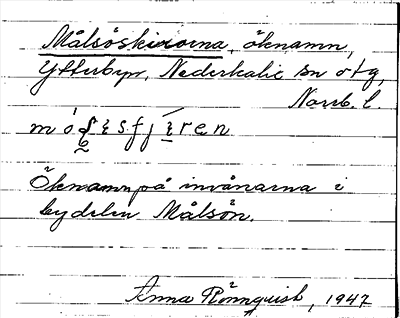 Målsöskirorna, öknamn,
Ytterbyn, Nederkalix sn o tg,
Norrb. l.
Öknamn på invånarna i
bydelen Målsön.
Anna Rönnquist, 1947